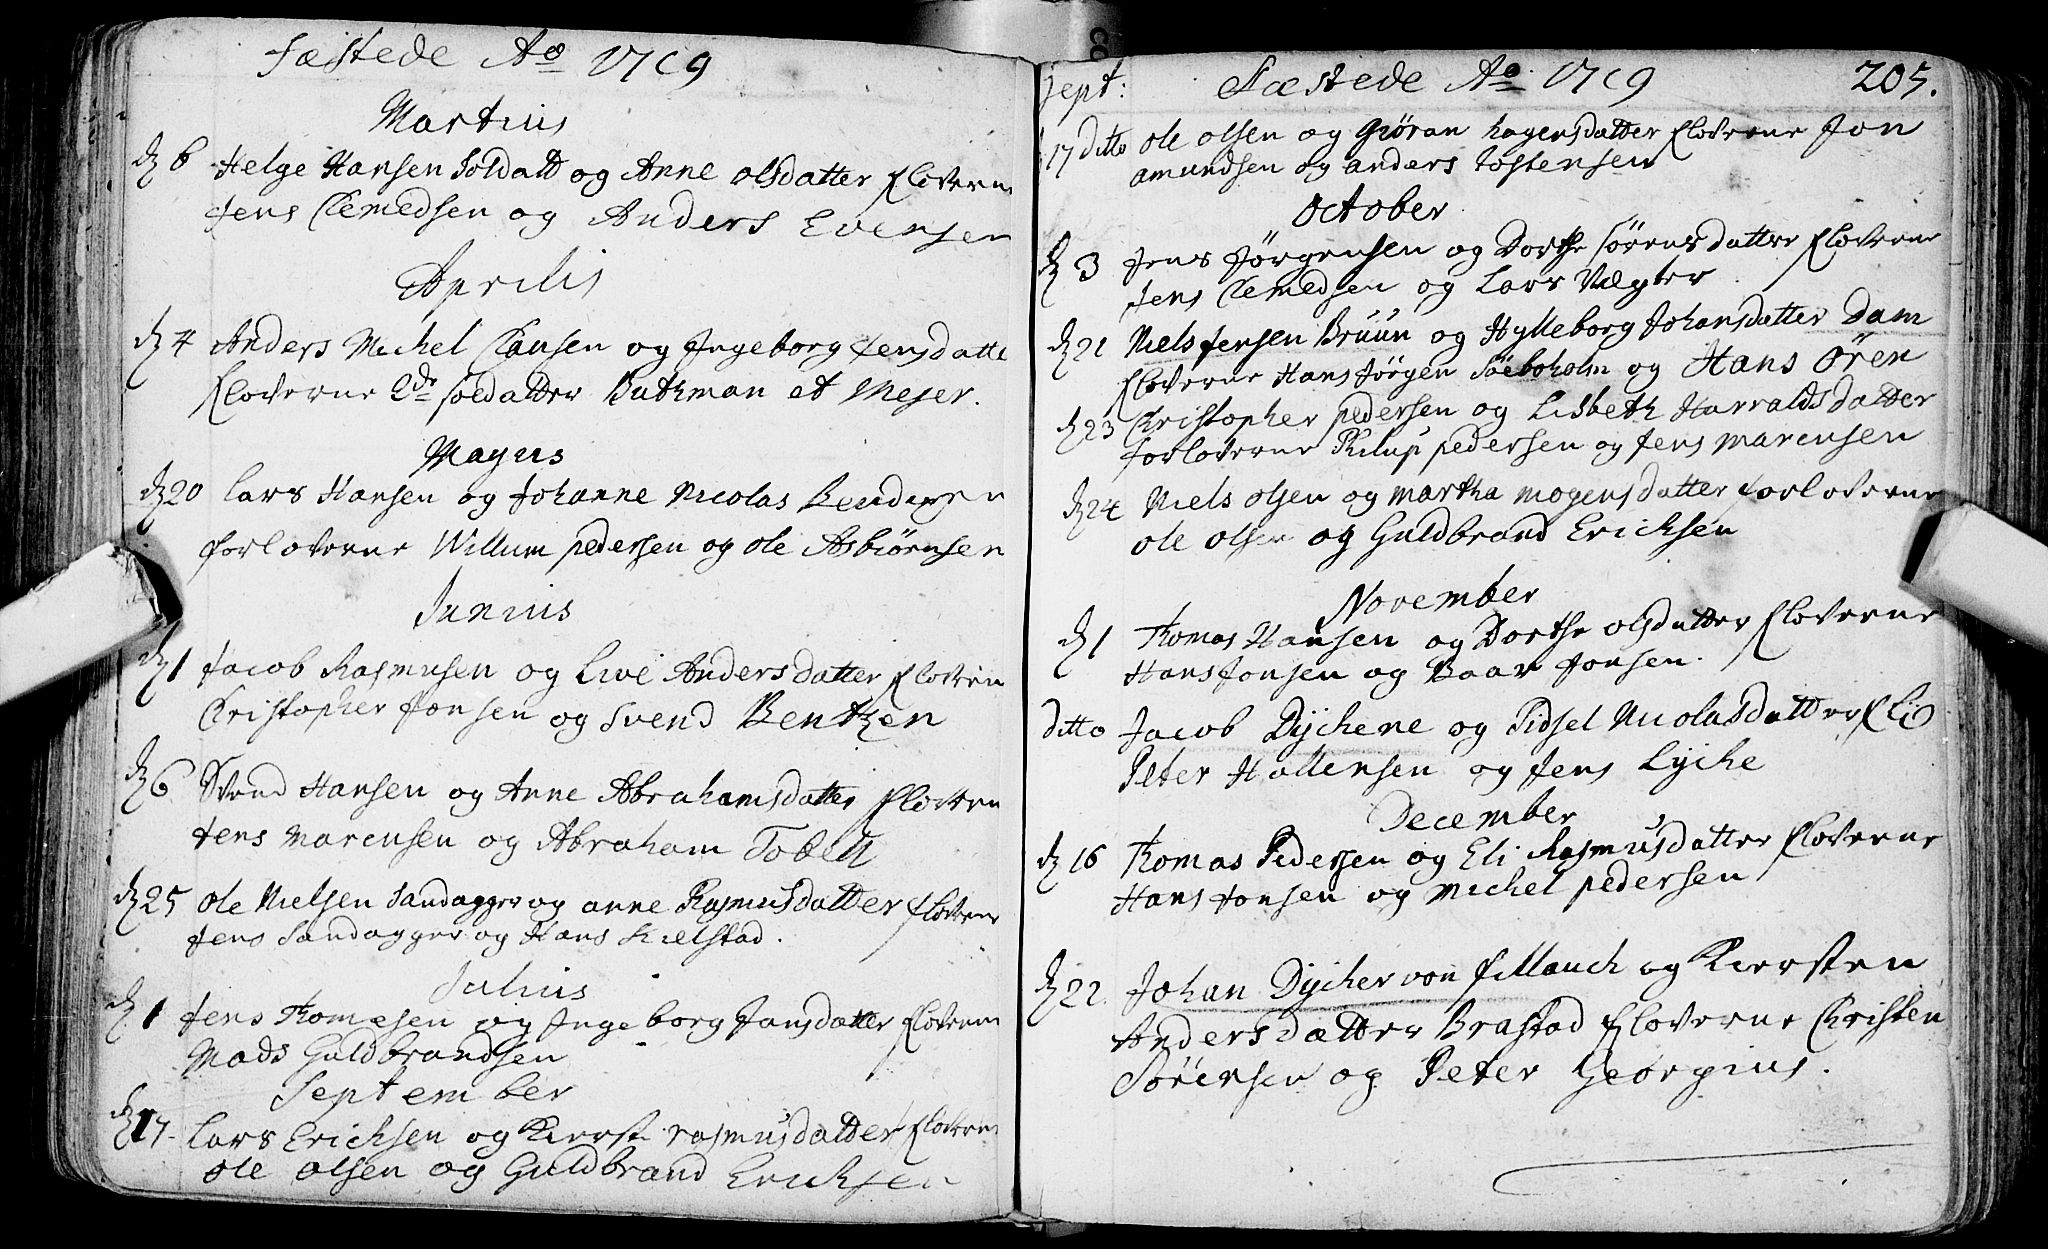 Fæstede Ao 1719
Martius
d 6 Helge Hansen Soldatt og Anne Olsdatter Floverne
Jens Clemedsen og Anders Evensen
Aprilis
d 4 Anders Michel Clausen og Ingeborg Jensdatte
Floverne 2de soldatter Buthman et Mejer.
Mayus
d 20 Lars Hansen og Johanne Nicolas Bendixsen
forloverne Willum pedersen og ole Asbiørnsen
Junius
d 1 Jacob Rasmusen og Live Andersdatter Floveren
Christopher Jonsen og Svend Bentzen
d 6 Svend Hansen og Anne Abrahamsdatter Floveren
Jens Marensen og Abraham
d 25 Ole Nielsen Sandagger og anne Rasmusdatter floverne
Jens Sandagger og Hans Kielstad.
Julius
d 1 Jens Thomesen og Ingeborg Jansdatter Floverne
Mads Guldbrandsen
September
d 17. Lars Ericksen og Kierst rasmusdatter Floveren
Ole olsen og Guldbrand Ericksen
Sept: Fæstede Ao 1719 205.
17 ditto Ole olsen og Giøran hagensdatter Floverne Jon
amundsen og anders tostensen
October
d 3 Jens Jørgensen og Dorthe sørensdatter Floverne
Jens Clemedsen og Lars Vægter
d 21 Niels Jensen Bruun og Hylleborg Johansdatter Dam
Floverne Hans Jørgen Söeboholm og Hans Ören
d 23 Christopher pedersen og Lisbeth Harraldsdatter
forloverne Philup pedersen og Jens marensen
d 24 Niels olsen og martha mogensdatter forloverne
ole olsen og Guldbrand Ericksen
November
d 1 Thomas Hansen og Dorthe olsdatter Floverne
Hans Jonsen og Baar Jonsen.
ditto Jacob Dÿchere og Sidsel Nicolasdatter
Peter Hallensen og Jens Lÿche
December
d 16 Thomas Pedersen og Eli Rasmusdatter Floverne
Hans Jonsen og Michel pedersen
d 22. Johan Dÿcher von Fillauch og Kiersten
Andersdatter Brastad Floverne Christen
Sörensen og Peter Georgius.